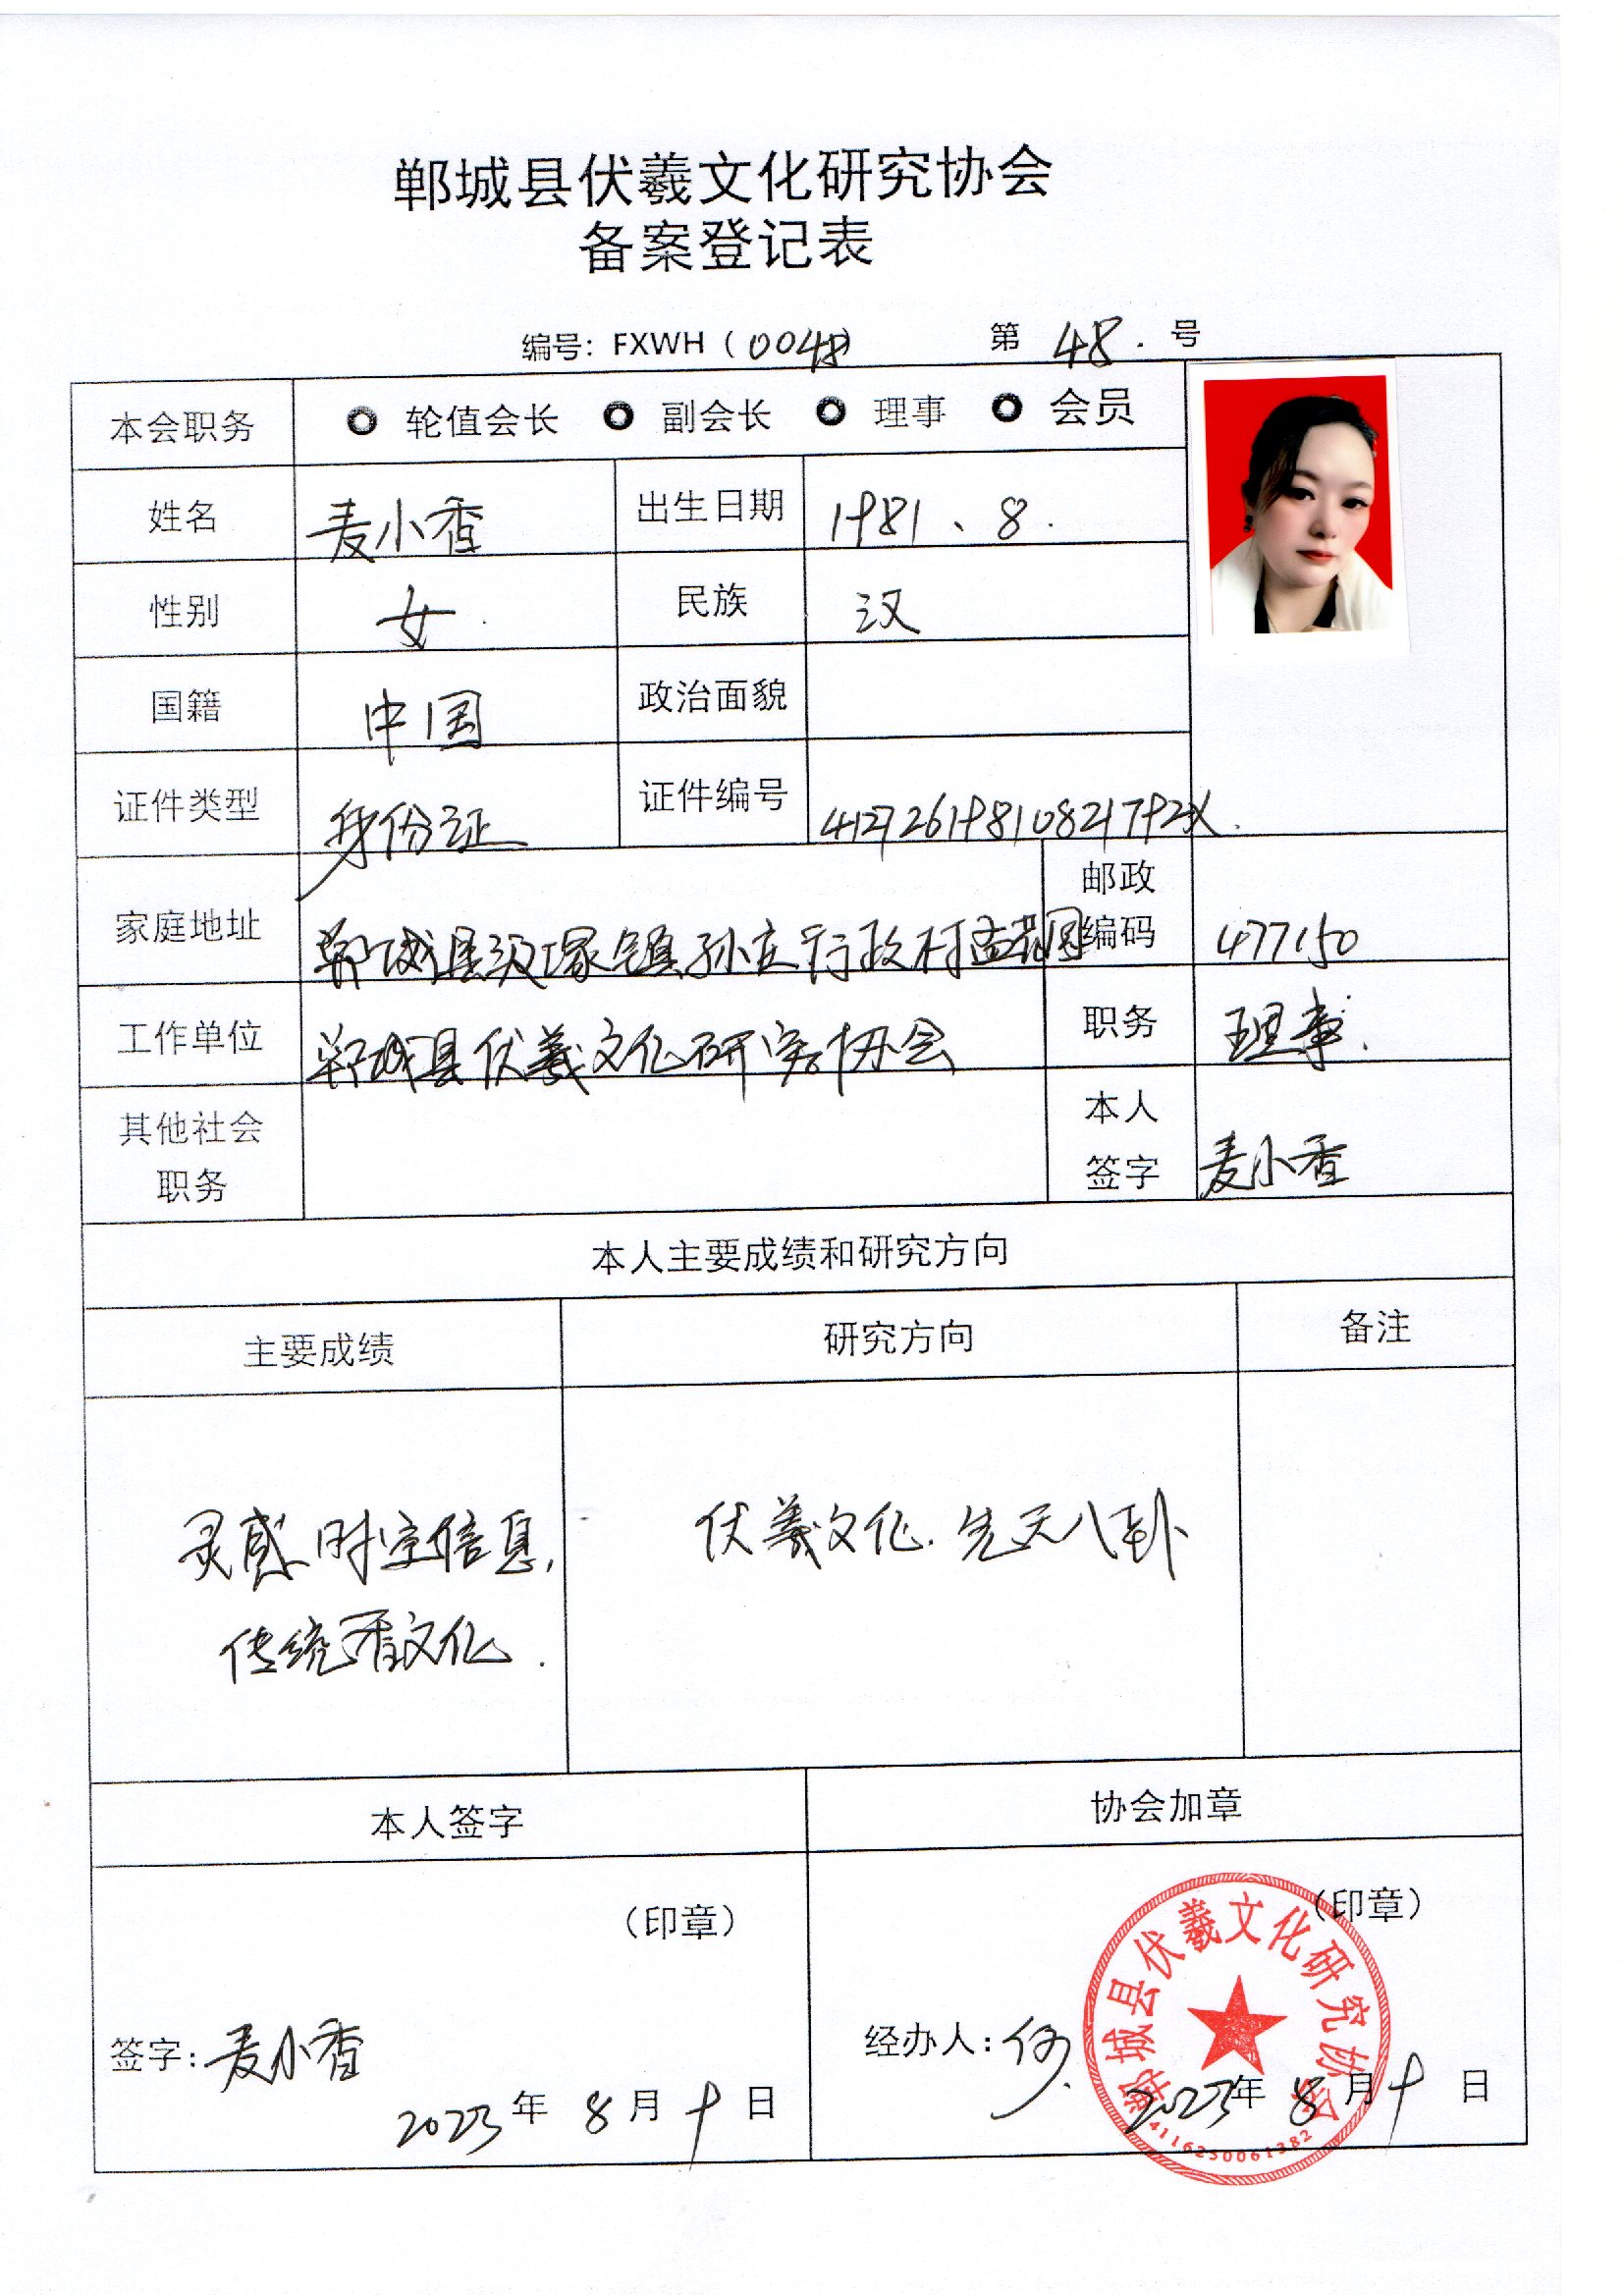 郸城县伏羲文化研究协会
备案登记表
编号：FXWH（0048） 第 48 . 号
本会职务 轮值会长 副会长 理事 会员
姓名 麦小香 出生日期 1981、8.
性别 女 民族 汉
国籍 中国 政治面貌
证件类型 身份证 证件编号
家庭地址 郸城县汲塚镇孙庄行政村孟花园 邮政编码 477150
工作单位 郸城县伏羲文化研究协会 职务 理事.
其他社会职务 本人签字 麦小香
本人主要成绩和研究方向
主要成绩 研究方向 备注
灵感时空信息, 伏羲文化. 先天八卦
传统香文化.
本人签字 协会加章
（印章） （印章）
签字：麦小香 经办人：何
2023年 8月 9日 2023年 8月 9日
郸城县伏羲文化研究协会
4116250061382